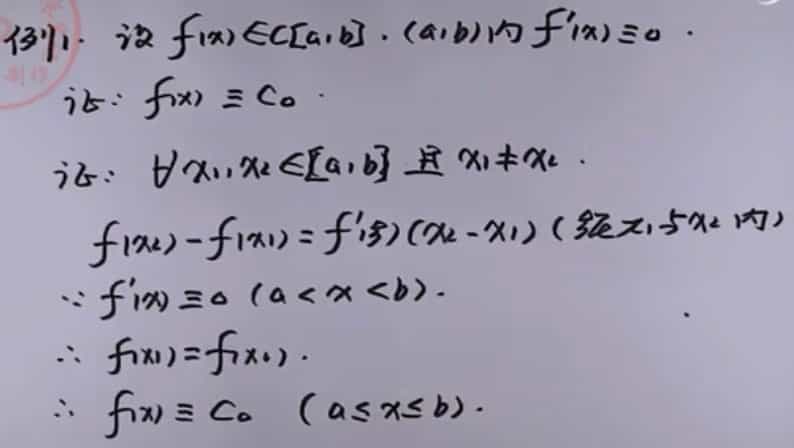 例1. 设 f(x)∈C[a,b]. (a,b)内 f'(x)≡0.
证: f(x)≡C₀.
证: ∀x₁,x₂∈[a,b] 且 x₁≠x₂.
f(x₂)-f(x₁)=f'(ξ)(x₂-x₁) (ξ在x₁与x₂内)
∵ f'(x)≡0 (a<x<b).
∴ f(x₁)=f(x₂).
∴ f(x)≡C₀ (a≤x≤b).